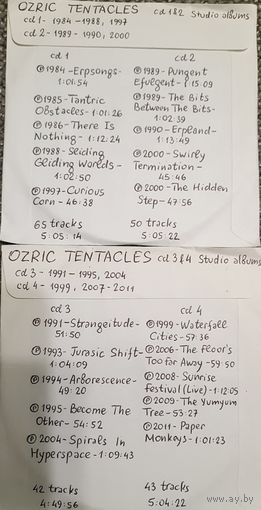 OZRIC TENTACLES cd 1&2 Studio albums
cd 1 - 1984-1988, 1997
cd 2 - 1989-1990, 2000
cd 1
℗ 1984 - Erpsongs -
1:01:54
℗ 1985 - Tantric
Obstacles - 1:01:26
℗ 1986 - There Is
Nothing - 1:12:24
℗ 1988 - Sliding
Gliding Worlds -
1:02:50
℗ 1997 - Curious
Corn - 46:38
65 tracks
5:05:14
cd 2
℗ 1989 - Pungent
Efulgent - 1:15:09
℗ 1989 - The Bits
Between The Bits -
1:02:39
℗ 1990 - Erpland -
1:13:49
℗ 2000 - Swirly
Termination -
45:46
℗ 2000 - The Hidden
Step - 47:56
50 tracks
5:05:22
OZRIC TENTACLES cd 3&4 Studio albums
cd 3 - 1991-1995, 2004
cd 4 - 1999, 2007-2011
cd 3
℗ 1991 - Strangeitude -
51:50
℗ 1993 - Jurasic Shift -
1:04:09
℗ 1994 - Arborescence -
49:20
℗ 1995 - Become The
Other - 54:52
℗ 2004 - Spirals In
Hyperspace - 1:09:43
42 tracks
4:49:56
cd 4
℗ 1999 - Waterfall
Cities - 57:36
℗ 2006 - The Floor's
Too Far Away - 59:50
℗ 2008 - Sunrise
Festival (Live) - 1:12:05
℗ 2009 - The Yumyum
Tree - 53:27
℗ 2011 - Paper
Monkeys - 1:01:23
43 tracks
5:04:22
www.ay.by